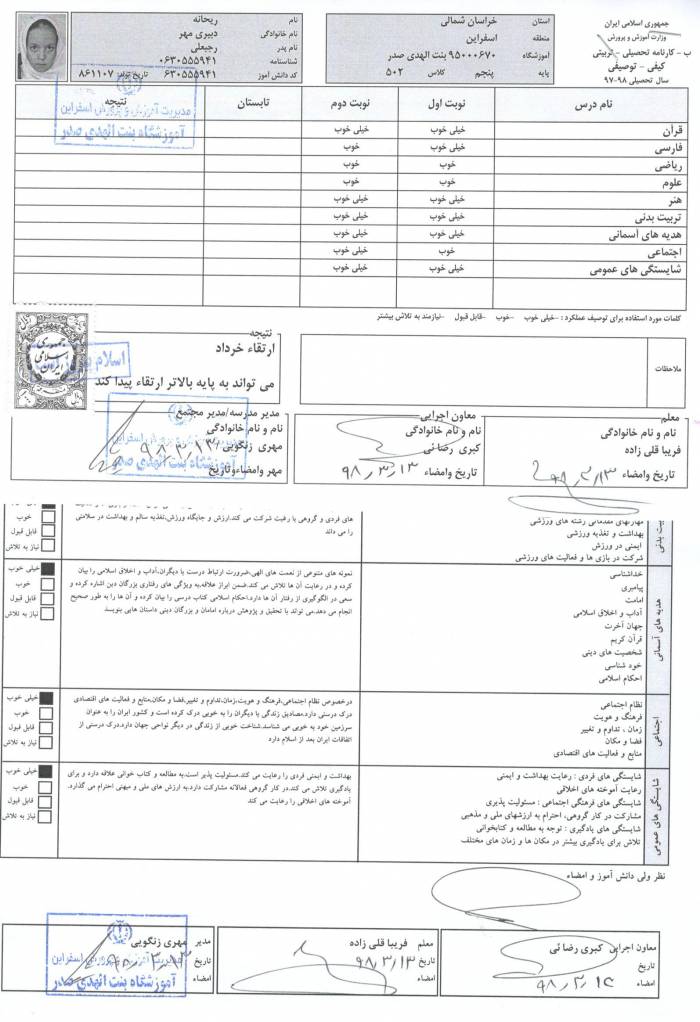 جمهوری اسلامی ایران
وزارت آموزش و پرورش
ب - کارنامه تحصیلی - تربیتی
کیفی - توصیفی
سال تحصیلی ۹۸-۹۷
استان خراسان شمالی
منطقه اسفراین
آموزشگاه ۹۵۰۰۰۶۷۰ بنت الهدی صدر
پایه پنجم کلاس ۵۰۲
نام ریحانه
نام خانوادگی دبیری مهر
نام پدر رجبعلی
شناسنامه ۰۶۳۰۵۵۵۹۴۱
کد دانش آموز ۰۶۳۰۵۵۵۹۴۱ تاریخ تولد ۸۶۱۱۰۷
نام درس نوبت اول نوبت دوم تابستان نتیجه
قرآن خیلی خوب خیلی خوب
فارسی خیلی خوب خوب
ریاضی خوب خوب
علوم خوب خوب
هنر خیلی خوب خیلی خوب
تربیت بدنی خیلی خوب خیلی خوب
هدیه های آسمانی خیلی خوب خیلی خوب
اجتماعی خوب خیلی خوب
شایستگی های عمومی خیلی خوب خیلی خوب
مدیریت آموزش و پرورش اسفراین
آموزشگاه بنت الهدی صدر
کلمات مورد استفاده برای توصیف عملکرد : -خیلی خوب -خوب -قابل قبول -نیازمند به تلاش بیشتر
ملاحظات
نتیجه
ارتقاء خرداد
می تواند به پایه بالاتر ارتقاء پیدا کند
جمهوری
اسلامی
ایران
معلم
نام و نام خانوادگی
فریبا قلی زاده
تاریخ وامضاء
معاون اجرایی
نام و نام خانوادگی
کبری رضائی
تاریخ وامضاء ۹۸٫۳٫۱۳
مدیر مدرسه/مدیر مجتمع
نام و نام خانوادگی
مهری زنگویی ۹۸٫۳٫۱۳
مهر وامضاءوتاریخ
مهارتهای مقدماتی رشته های ورزشی
بهداشت و تغذیه ورزشی
ایمنی در ورزش
شرکت در بازی ها و فعالیت های ورزشی
های فردی و گروهی با رغبت شرکت می کند.ارزش و جایگاه ورزش،تغذیه سالم و بهداشت در سلامتی
را می داند
خوب
قابل قبول
نیاز به تلاش
هدیه های آسمانی
خداشناسی
پیامبری
امامت
آداب و اخلاق اسلامی
جهان آخرت
قرآن کریم
شخصیت های دینی
خود شناسی
احکام اسلامی
نمونه های متنوعی از نعمت های الهی،ضرورت ارتباط درست با دیگران،آداب و اخلاق اسلامی را بیان
کرده و در رعایت آن ها تلاش می کند.ضمن ابراز علاقه،به ویژگی های رفتاری بزرگان دین اشاره کرده و
سعی در الگوگیری از رفتار آن ها دارد.احکام اسلامی کتاب درسی را بیان کرده و آن ها را به طور صحیح
انجام می دهد.می تواند با تحقیق و پژوهش درباره امامان و بزرگان دینی داستان هایی بنویسد
خیلی خوب
خوب
قابل قبول
نیاز به تلاش
اجتماعی
نظام اجتماعی
فرهنگ و هویت
زمان ، تداوم و تغییر
فضا و مکان
منابع و فعالیت های اقتصادی
درخصوص نظام اجتماعی،فرهنگ و هویت،زمان،تداوم و تغییر،فضا و مکان،منابع و فعالیت های اقتصادی
درک درستی دارد.مصادیق زندگی با دیگران را به خوبی درک کرده است و کشور ایران را به عنوان
سرزمین خود به خوبی می شناسد.شناخت خوبی از زندگی در دیگر نواحی جهان دارد.درک درستی از
اتفاقات ایران بعد از اسلام دارد
خیلی خوب
خوب
قابل قبول
نیاز به تلاش
شایستگی های عمومی
شایستگی های فردی : رعایت بهداشت و ایمنی
رعایت آموخته های اخلاقی
شایستگی های فرهنگی اجتماعی : مسئولیت پذیری
مشارکت در کار گروهی، احترام به ارزشهای ملی و مذهبی
شایستگی های یادگیری : توجه به مطالعه و کتابخوانی
تلاش برای یادگیری بیشتر در مکان ها و زمان های مختلف
بهداشت و ایمنی فردی را رعایت می کند.مسئولیت پذیر است.به مطالعه و کتاب خوانی علاقه دارد و برای
یادگیری تلاش می کند.در کار گروهی فعالانه مشارکت دارد.به ارزش های ملی و میهنی احترام می گذارد.
آموخته های اخلاقی را رعایت می کند
خیلی خوب
خوب
قابل قبول
نیاز به تلاش
نظر ولی دانش آموز و امضاء
معاون اجرایی کبری رضائی
تاریخ
امضاء
معلم فریبا قلی زاده
تاریخ ۹۸٫۳٫۱۳
امضاء
مدیر مهری زنگویی
تاریخ
امضاء
آموزشگاه بنت الهدی صدر